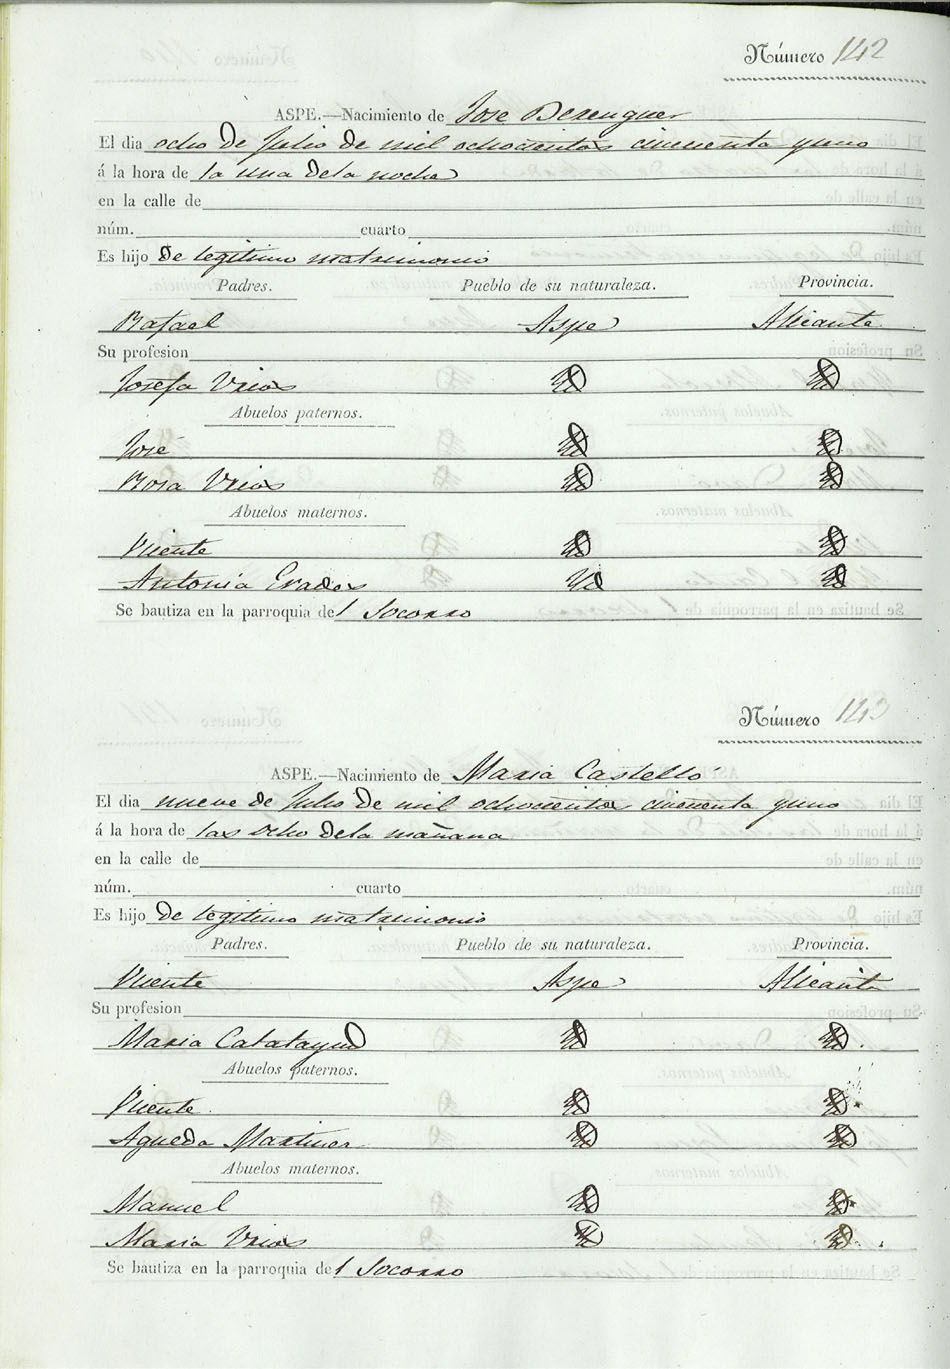 Número 142
ASPE.—Nacimiento de Jose Berenguer
El dia ocho de Julio de mil ochocientos cincuenta y uno
á la hora de la una de la noche
en la calle de
núm. cuarto
Es hijo de legitimo matrimonio
Padres. Pueblo de su naturaleza. Provincia.
Rafael Aspe Alicante
Su profesion
Josefa Vrios Yd Yd
Abuelos paternos.
José Yd Yd
Rosa Vrios Yd Yd
Abuelos maternos.
Vicente Yd Yd
Antonia Yd Yd
Se bautiza en la parroquia del Socorro
Número 143
ASPE.—Nacimiento de Maria Castelló
El dia nueve de Julio de mil ochocientos cincuenta y uno
á la hora de las ocho de la mañana
en la calle de
núm. cuarto
Es hijo de legitimo matrimonio
Padres. Pueblo de su naturaleza. Provincia.
Vicente Aspe Alicante
Su profesion
Maria Calatayud Yd Yd
Abuelos paternos.
Vicente Yd Yd
Agueda Martinez Yd Yd
Abuelos maternos.
Manuel Yd Yd
Maria Vrios Yd Yd
Se bautiza en la parroquia del Socorro